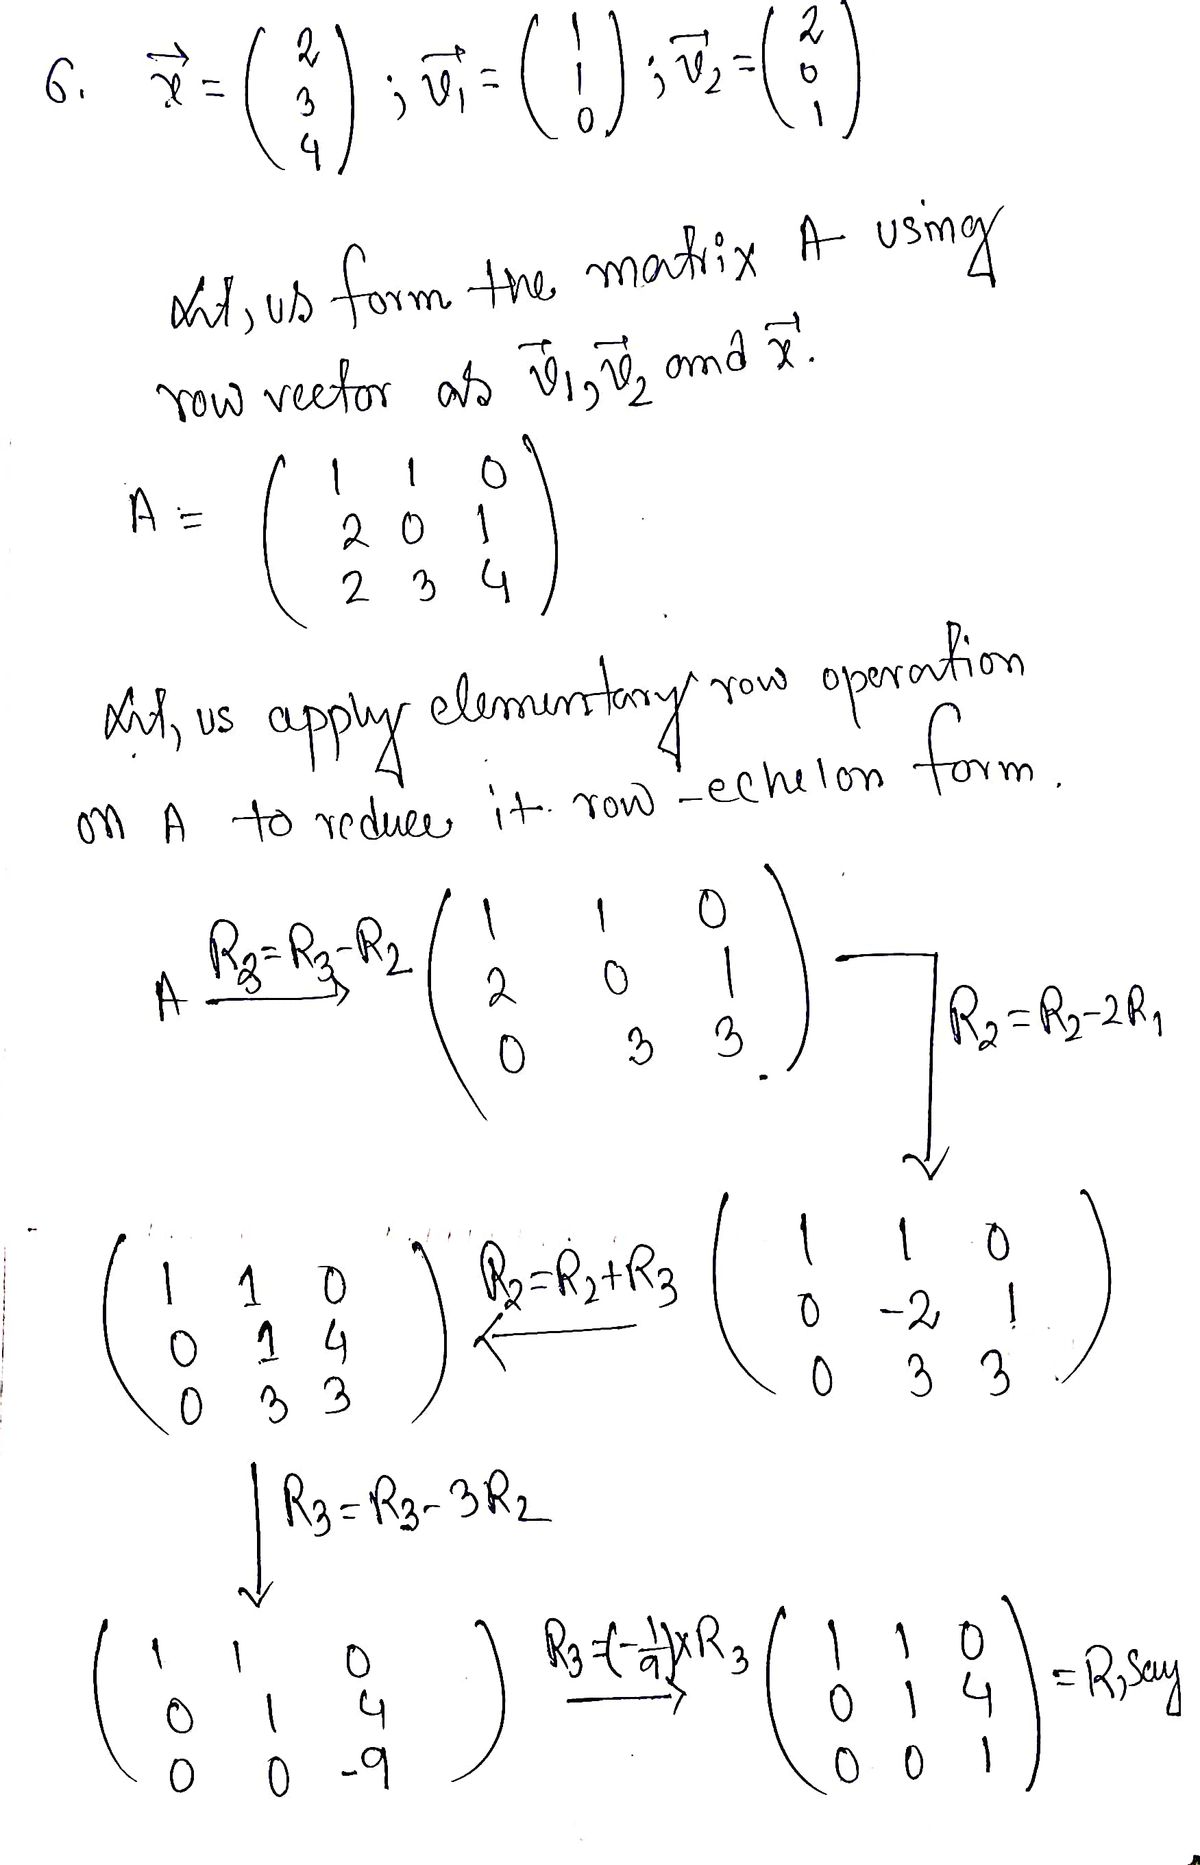 6. x⃗ = (2 3 4) ; v⃗₁ = (1 1 0) ; v⃗₂ = (2 0 1)
Let, us form the matrix A using
row vector as v⃗₁, v⃗₂ and x⃗.
A = (1 1 0
2 0 1
2 3 4)
Let, us apply elementary row operation
on A to reduce it row-echelon form.
A R₃=R₃-R₂ → (1 1 0
2 0 1
0 3 3)
R₂=R₂-2R₁ ↓
(1 1 0
0 -2 1
0 3 3)
R₂=R₂+R₃ ←
(1 1 0
0 1 4
0 3 3)
↓ R₃=R₃-3R₂
(1 1 0
0 1 4
0 0 -9)
R₃=(-1/9)×R₃ →
(1 1 0
0 1 4
0 0 1) = R, say